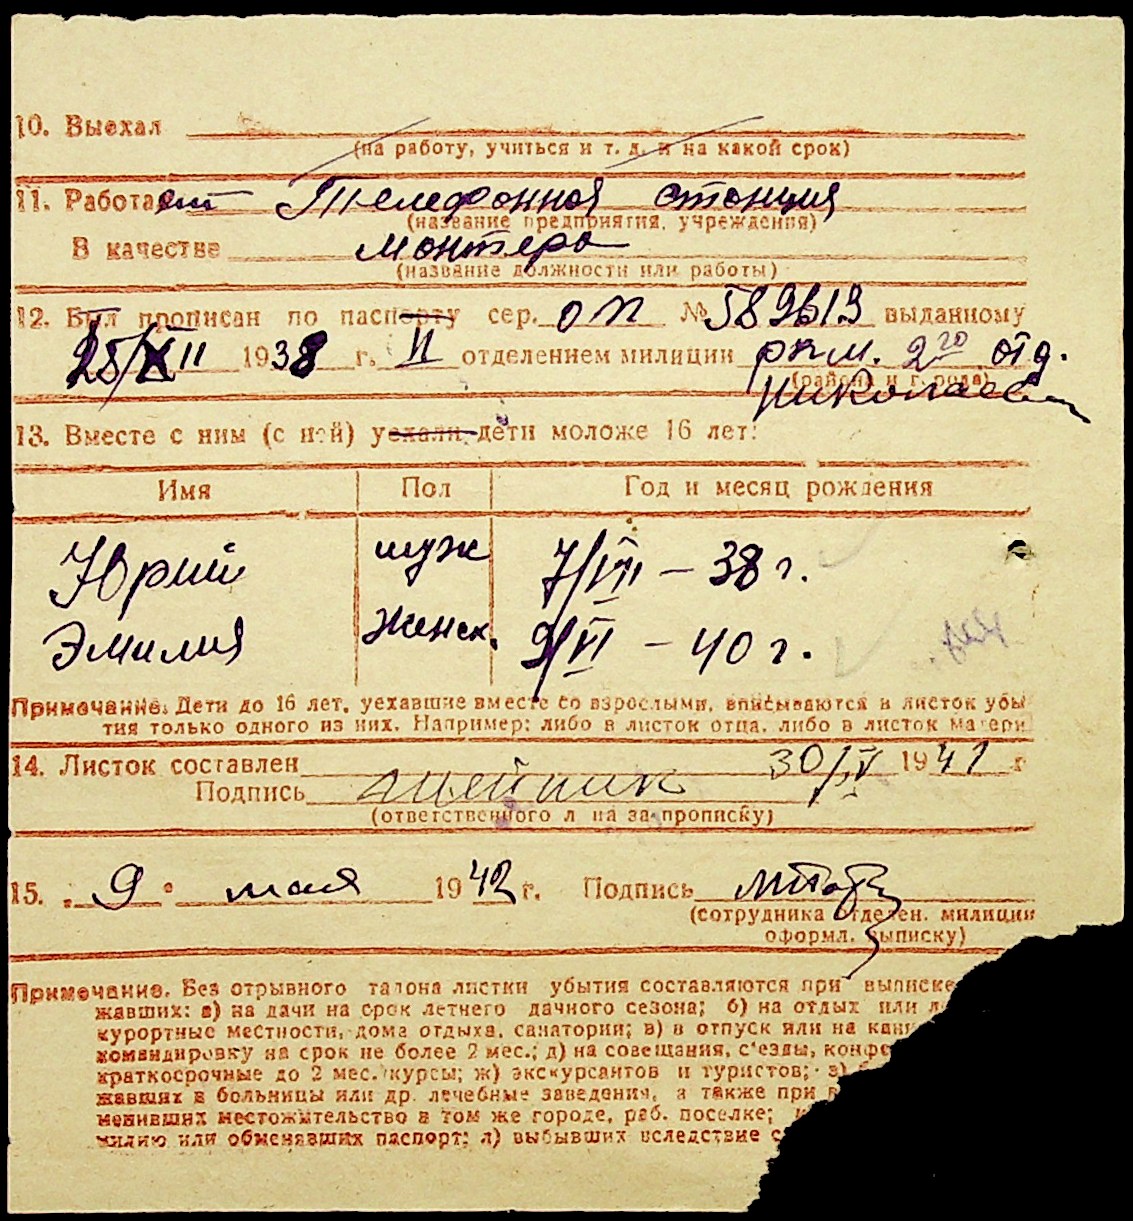 10. Выехал
(на работу, учиться и т. д. и на какой срок)
11. Работает Телефонная станция
(название предприятия, учреждения)
В качестве монтера
(название должности или работы)
12. Был прописан по паспорту сер. ОП № 589619 выданному
25/XII 1938 г. II отделением милиции РКМ. 2го отд.
(района и города) Николаев
13. Вместе с ним (с ней) уехали дети моложе 16 лет:
Имя Пол Год и месяц рождения
Юрий муж 7/VII – 38 г.
Эмилия женск. 9/VI – 40 г.
Примечание. Дети до 16 лет, уехавшие вместе со взрослыми, вписываются в листок убы
тия только одного из них. Например: либо в листок отца, либо в листок матери
14. Листок составлен 30/IV 1941 г
Подпись
(ответственного л на за прописку)
15. 9 мая 1942 г. Подпись
(сотрудника отделен. милиции
оформл. выписку)
Примечание. Без отрывного талона листки убытия составляются при выписке
жавших: а) на дачи на срок летнего дачного сезона; б) на отдых или ле
курортные местности, дома отдыха, санатории; в) в отпуск или на кани
командировку на срок не более 2 мес.; д) на совещания, с'езды, конфе
краткосрочные до 2 мес. курсы; ж) экскурсантов и туристов; з)
жавших в больницы или др. лечебные заведения, а также при
менивших местожительство в том же городе, раб. поселке;
милию или обменявших паспорт; л) выбывших вследствие